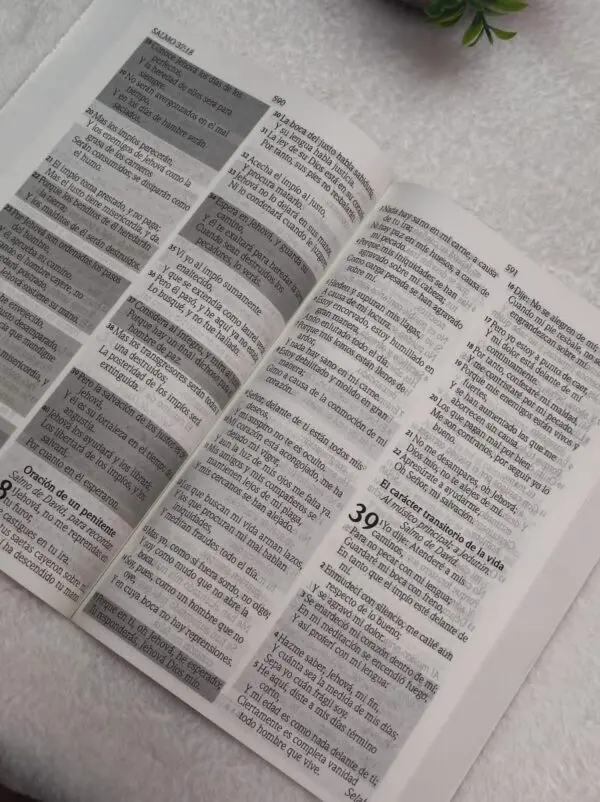 SALMO 37.18
590
18 Conoce Jehová los días de los
perfectos,
Y la heredad de ellos será para
siempre.
19 No serán avergonzados en el mal
tiempo,
Y en los días de hambre serán
saciados.
20 Mas los impíos perecerán,
Y los enemigos de Jehová como la
grasa de los carneros
Serán consumidos; se disiparán como
el humo.
21 El impío toma prestado, y no paga;
Mas el justo tiene misericordia, y da.
22 Porque los benditos de él heredarán
la tierra;
Y los malditos de él serán destruidos.
son ordenados los pasos
del hombre,
Y él aprueba su camino.
el hombre cayere, no
postrado,
Jehová sostiene su mano.
he envejecido,
justo desamparado,
que mendigue
misericordia, y
30 La boca del justo habla sabiduría,
Y su lengua habla justicia.
31 La ley de su Dios está en su corazón;
Por tanto, sus pies no resbalarán.
32 Acecha el impío al justo,
Y procura matarlo.
33 Jehová no lo dejará en sus manos,
Ni lo condenará cuando le juzgaren.
34 Espera en Jehová, y guarda su
camino,
Y él te exaltará para heredar la tierra;
Cuando sean destruidos los
pecadores, lo verás.
35 Vi yo al impío sumamente
enaltecido,
Y que se extendía como laurel verde.
36 Pero él pasó, y he aquí ya no estaba;
Lo busqué, y no fue hallado.
37 Considera al íntegro, y mira al justo;
Porque hay un final dichoso para el
hombre de paz.
38 Mas los transgresores serán todos a
una destruidos;
La posteridad de los impíos será
extinguida.
39 Pero la salvación de los justos es de
Jehová,
Y él es su fortaleza en el tiempo de la
angustia.
40 Jehová los ayudará y los librará;
Los libertará de los impíos, y los
salvará,
Por cuanto en él esperaron.
Oración de un penitente
Salmo de David, para recordar.
8 Jehová, no me reprendas en
tu furor,
castigues en tu ira.
tus saetas cayeron sobre mí,
ha descendido tu mano.
591
3 Nada hay sano en mi carne, a causa
de tu ira;
Ni hay paz en mis huesos, a causa de
mi pecado.
4 Porque mis iniquidades se han
agravado sobre mi cabeza;
Como carga pesada se han agravado
sobre mí.
5 Hieden y supuran mis llagas,
A causa de mi locura.
6 Estoy encorvado, estoy humillado en
gran manera,
Ando enlutado todo el día.
7 Porque mis lomos están llenos de
ardor,
Y nada hay sano en mi carne.
8 Estoy debilitado y molido en gran
manera;
Gimo a causa de la conmoción de mi
corazón.
9 Señor, delante de ti están todos mis
deseos,
Y mi suspiro no te es oculto.
10 Mi corazón está acongojado, me ha
dejado mi vigor,
Y aun la luz de mis ojos me falta ya.
11 Mis amigos y mis compañeros se
mantienen lejos de mi plaga,
Y mis cercanos se han alejado.
12 Los que buscan mi vida arman lazos,
Y los que procuran mi mal hablan
iniquidades,
Y meditan fraudes todo el día.
13 Mas yo, como si fuera sordo, no oigo;
Y soy como mudo que no abre la
boca.
14 Soy, pues, como un hombre que no
oye,
Y en cuya boca no hay reprensiones.
15 Porque en ti, oh Jehová, he esperado;
Tú responderás, Jehová Dios mío.
16 Dije: No se alegren de mí;
Cuando mi pie resbale, no se
engrandezcan sobre mí.
17 Pero yo estoy a punto de caer,
Y mi dolor está delante de mí
continuamente.
18 Por tanto, confesaré mi maldad,
Y me contristaré por mi pecado.
19 Porque mis enemigos están vivos y
fuertes,
Y se han aumentado los que me
aborrecen sin causa.
20 Los que pagan mal por bien
Me son contrarios, por seguir yo lo
bueno.
21 No me desampares, oh Jehová;
Dios mío, no te alejes de mí.
22 Apresúrate a ayudarme,
Oh Señor, mi salvación.
El carácter transitorio de la vida
Al músico principal; a Jedutún.
Salmo de David.
39 1 Yo dije: Atenderé a mis
caminos,
Para no pecar con mi lengua;
Guardaré mi boca con freno,
En tanto que el impío esté delante de
mí.
2 Enmudecí con silencio, me callé aun
respecto de lo bueno;
Y se agravó mi dolor.
3 Se enardeció mi corazón dentro de mí;
En mi meditación se encendió fuego,
Y así proferí con mi lengua:
4 Hazme saber, Jehová, mi fin,
Y cuánta sea la medida de mis días;
Sepa yo cuán frágil soy.
5 He aquí, diste a mis días término
corto,
Y mi edad es como nada delante de ti;
Ciertamente es completa vanidad
todo hombre que vive.
Selah